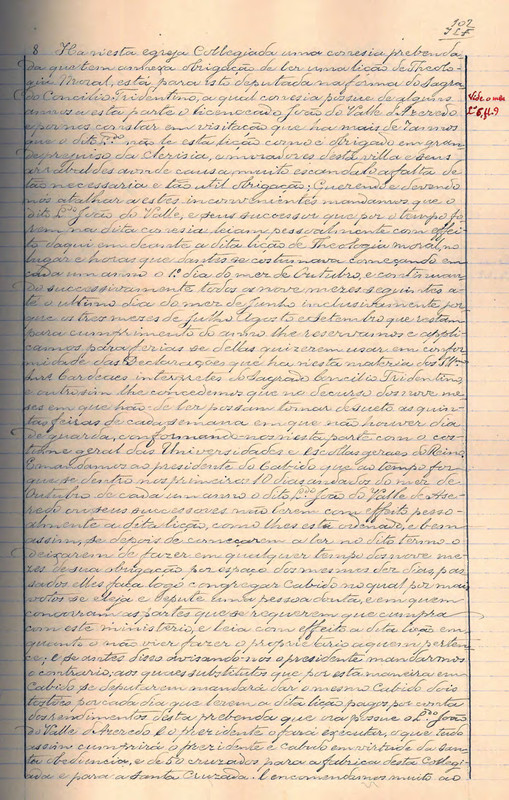 102
JLF
8 Ha nesta egreja Collegiada uma conesia prebenda-
da que tem annexa obrigação de ler uma lição de Theolo-
gia Moral, está para isto deputada na fórma do Sagra-
do Concilio Tridentino, a qual conesia possue de alguns
annos a esta parte o licenceado João do Valle d'Azeredo
e por nos constar em visitação que ha mais de 7 annos
que o dito L.do não le esta lição como é obrigado em gran-
de prejuiso da clerisia, e moradores desta villa e seus
arrabaldes aonde causa muito escandalo a falta de
tão necessaria e tão util obrigação; Querendo e devendo
nós atalhar a estes inconvenientes mandamos que o
dito L.do João do Valle, e seus successor que por o tempo fo-
rem na dita conesia leiam pessoalmente com effei-
to daqui em deante a dita lição de Theologia moral, no
lugar e horas que dantes se costumava começando em
cada um anno o 1.º dia do mez de Outubro, e continuan-
do successivamente todos os nove mezes seguintes a-
té o ultimo dia do mez de Junho inclusivamente por
que os tres meses de Julho Agosto e Setembro que restam
para cumprimento do anno lhe reservamos e appli-
camos para ferias se dellas quizerem usar em confor-
midade das Declarações que ha nesta materia dos Ill.mos
Snrs Cardeaes interpretes do Sagrado Concilio Tridentino
e outrosim lhe concedemos que no decurso dos nove me-
ses em que hão-de ler possam tomar desueto as quin-
tas feiras de cada semana em que não houver dia
de guarda, conformando-nos nesta parte com o cos-
tume geral das Universidades e Escollas geraes do Reino
E mandamos ao presidente do Cabido que ao tempo for
que se dentro nos primeiros 10 dias andados do mez de
Outubro de cada um anno o dito L.do João do Valle de Aze-
redo ou seus successores não lerem com effeito pesso-
almente a dita lição, como lhes está ordenado, e bem
assim, se depois de começarem a ler no dito termo o
deixarem de fazer em qualquer tempo dos nove me-
zes de sua obrigação por espaço dos mesmos dez dias, pas-
sados elles faça logo congregar Cabido no qual por mais
votos se eleja e depute uma pessoa douta, e em quem
concorram as partes que se requerem que cumpra
com este ministério, e leia com effeito a dita lição em
quanto o não vier fazer o proprietario a quem perten-
ce; e se antes disso avisando-nos o presidente mandarmos
o contrario, aos quaes substitutos que por esta maneira em
Cabido se deputarem mandará dar o mesmo Cabido dois
tostões por cada dia que lerem a dita lição pagos por conta
dos rendimentos desta prebenda que ora possue o L.do João
do Valle d'Azeredo e o presidente o fará executar, o que tudo
assim cumprirá o prezidente e Cabido em virtude da san-
ta obediencia, e de 50 cruzados para a fabrica desta Collegi-
ada e para a Santa Cruzada. E encomendamos muito ao
Vide o mes
L.º 6, fl. 9